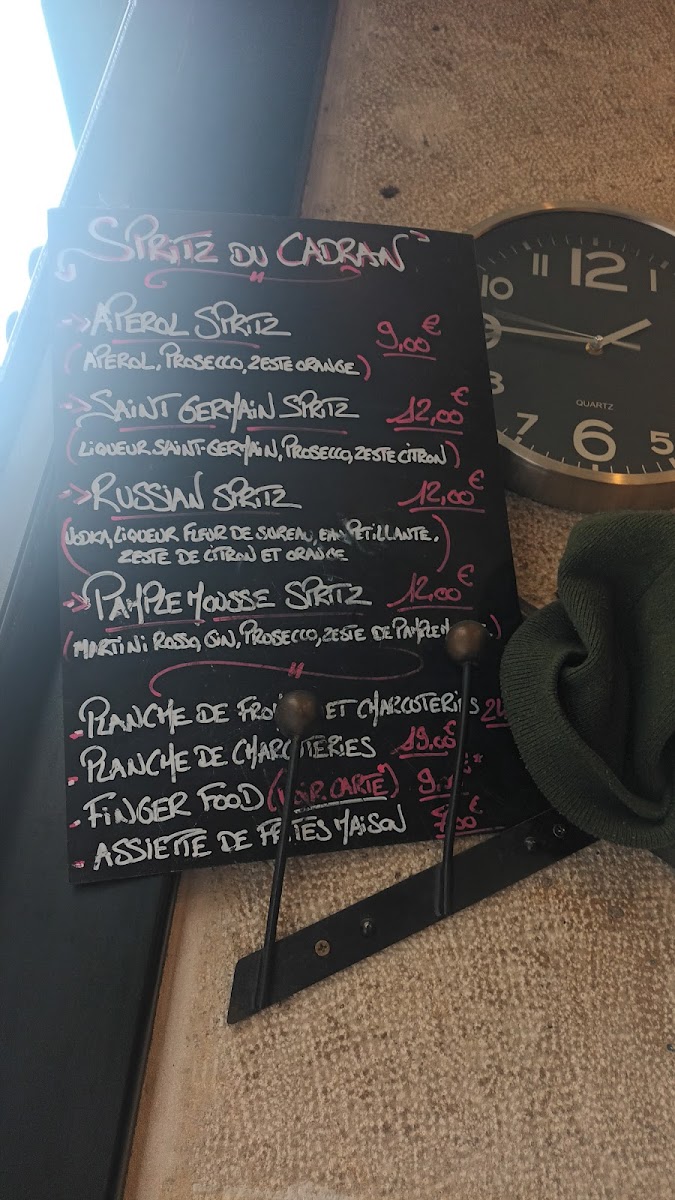 "SPRITZ DU CADRAN"
APEROL SPRITZ 9,00€
(APEROL, PROSECCO, ZESTE ORANGE)
SAINT GERMAIN SPRITZ 12,00€
(LIQUEUR SAINT-GERMAIN, PROSECCO, ZESTE CITRON)
RUSSIAN SPRITZ 12,00€
(VODKA, LIQUEUR FLEUR DE SUREAU, EAU PETILLANTE,
ZESTE DE CITRON ET ORANGE)
PAMPLEMOUSSE SPRITZ 12,00€
(MARTINI ROSSO, GIN, PROSECCO, ZESTE DE
- PLANCHE DE ET CHARCUTERIES
- PLANCHE DE CHARCUTERIES 19,00€
- FINGER FOOD (VOIR CARTE)
- ASSIETTE DE FRITES MAISON
10 11 12 1
8 7 6 5
QUARTZ